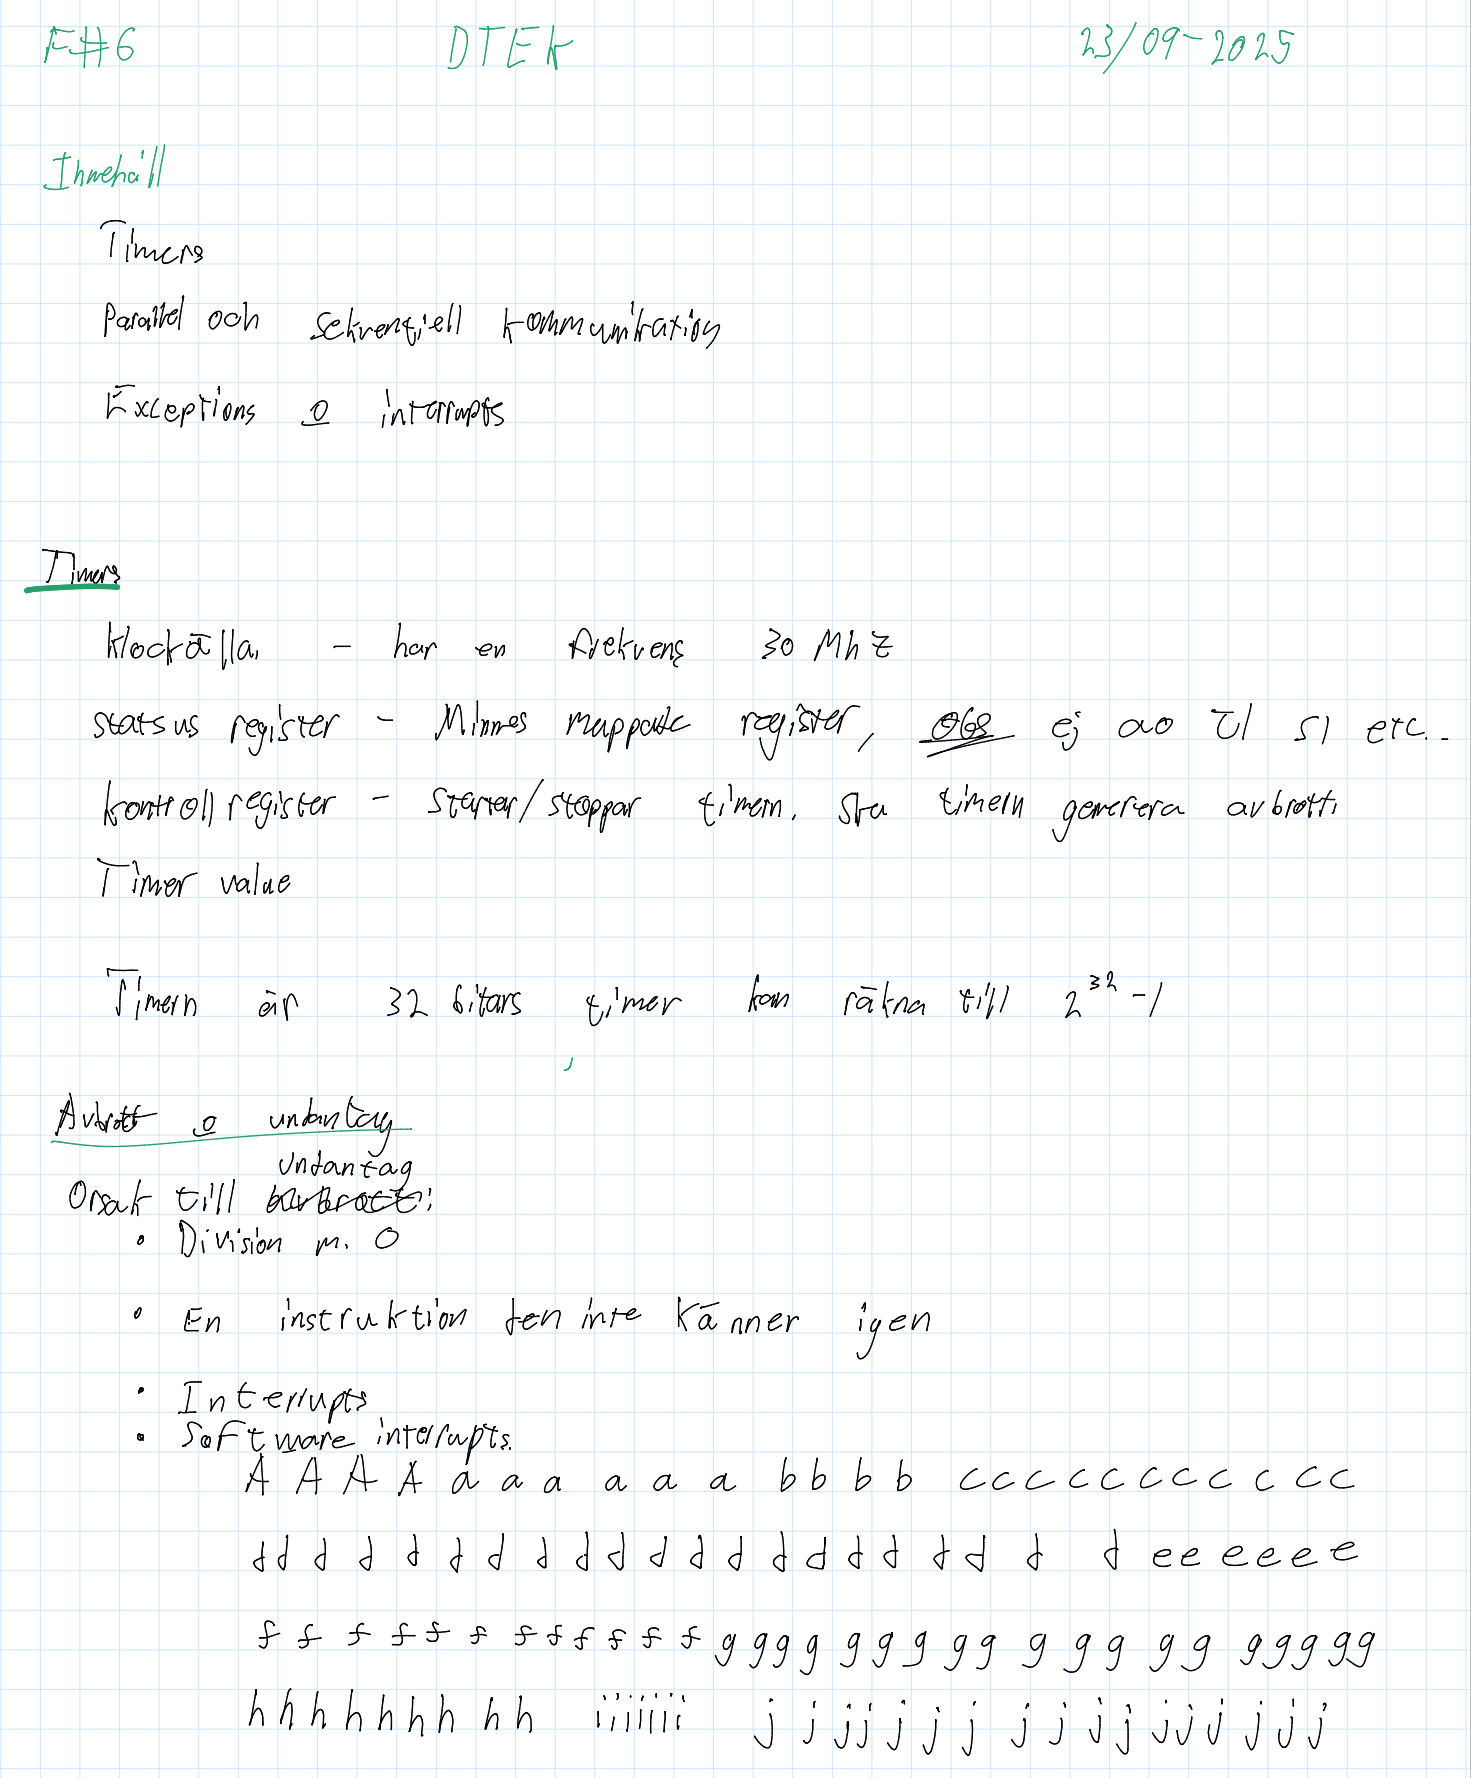 F#6 DTEK 23/09-2025
Innehåll
Timers
Parallel och sekventiell kommunikation
Exceptions o interrupts
Timers
Klockälla. - har en frekvens 30 Mhz
statsus register - Minnes mappade register, OBS ej a0 t1 s1 etc..
kontroll register - Startar/stoppar timern. ska timern generera avbrott.
Timer value
Timern är 32 bitars timer kan räkna till 2^32 -1
Avbrott o undantag
undantag
Orsak till avbrott:
• Division m. 0
• En instruktion den inte känner igen
• Interrupts
• Software interrupts.
A A A A a a a a a a b b b b c c c c c c c c c c c
d d d d d d d d d d d d d d d d d d d d d d e e e e e e
f f f f f f f f f f f f g g g g g g g g g g g g g g g g g g g
h h h h h h h h h i i i i i i i j j j j j j j j j j j j j j j j j